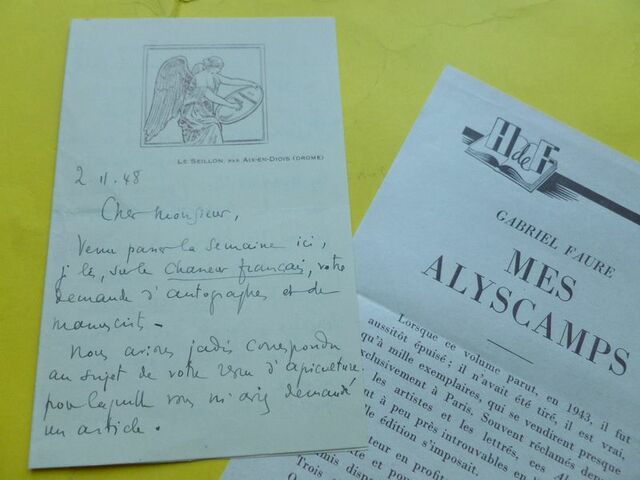 LE SEILLON, PAR AIX-EN-DIOIS (DROME)
2.11.48
Cher Monsieur,
Venu passer la semaine ici,
j'lis, sur le Chasseur français, votre
demande d'autographes et de
manuscrits.
Nous avions jadis correspondu
au sujet de votre revue d'apiculture
pour laquelle vous m'aviez demandé
un article.
H de F
GABRIEL FAURE
MES
ALYSCAMPS
Lorsque ce volume parut, en 1943, il fut
aussitôt épuisé ; il n'avait été tiré, il est vrai,
qu'à mille exemplaires, qui se vendirent presque
exclusivement à Paris. Souvent réclamés
les artistes et les lettrés, ces
à peu près introuvables en
édition s'imposait.
en profit
Trois